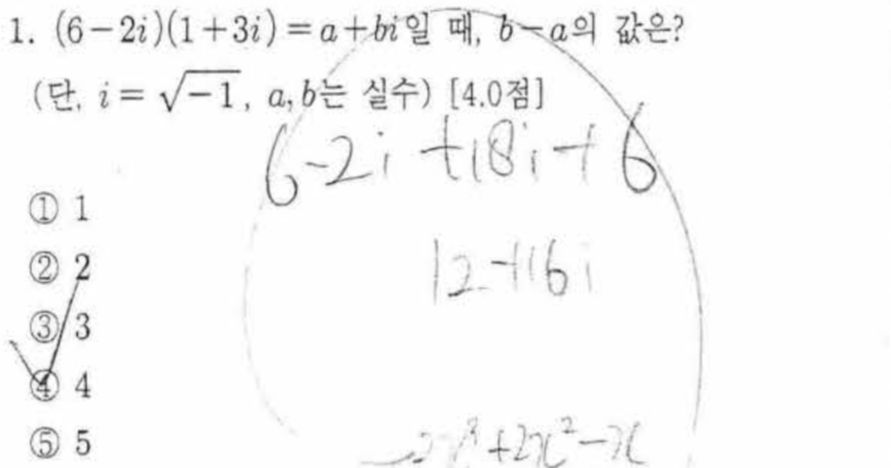 1. (6-2i)(1+3i)=a+bi일 때, b-a의 값은?
(단, i=√-1, a, b는 실수) [4.0점]
6-2i+18i+6
12+16i
① 1
② 2
③ 3
④ 4
⑤ 5